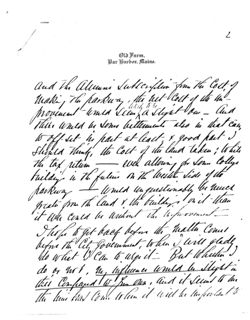 2
Old Farm,
Bar Harbor, Maine.
and the Alumni Subscription from the Cost of
making the parkway, the net Cost of the im-
provement would seem a slight one — And
there would be some betterment also in that case,
to off set in part at least, a good part I
should think, the Cost of the land taken; while
the tax return — even allowing for some College
buildings in the future on the Western side of the
parkway — would unquestionably be much
greater from the land & the buildings on it than
it ever could be without the improvement —
I hope to get back before the matter comes
before the City government, when I will gladly
do what I can to urge it — But whether I
do or not, my influence would be slight in
this compared to your own, and it seems to me
the time has come when it will be important to